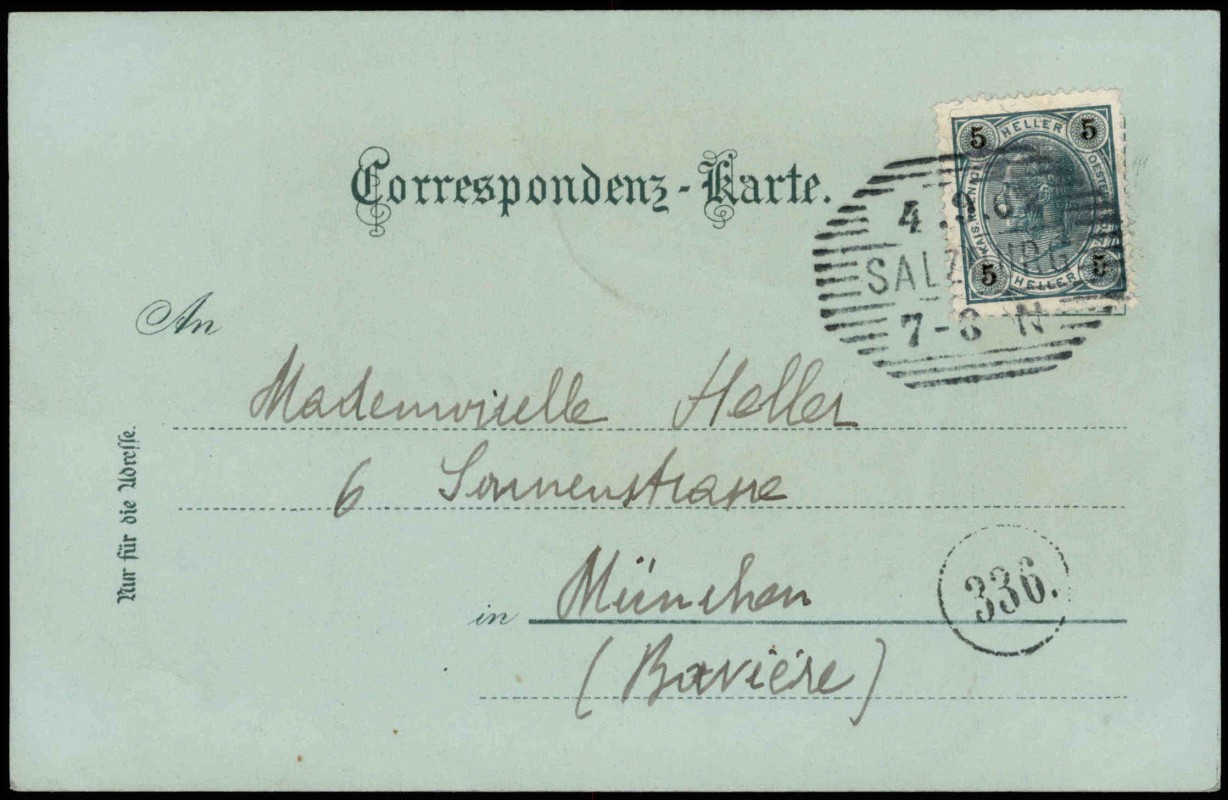 Correspondenz-Karte.
5 HELLER 5
5 HELLER 5
4.9.02
SALZBURG
7-8 N
An
Mademoiselle Heller
6 Sonnenstrasse
in München
(Bavière)
336.
Nur für die Adresse.